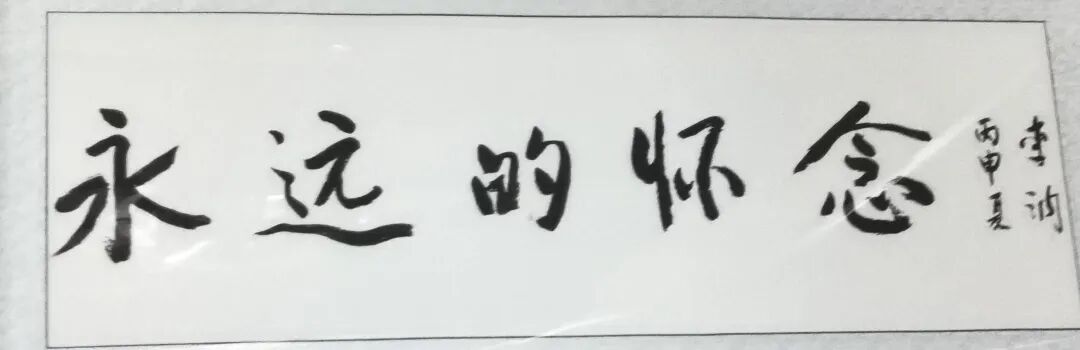 永远的怀念
丙申夏
李